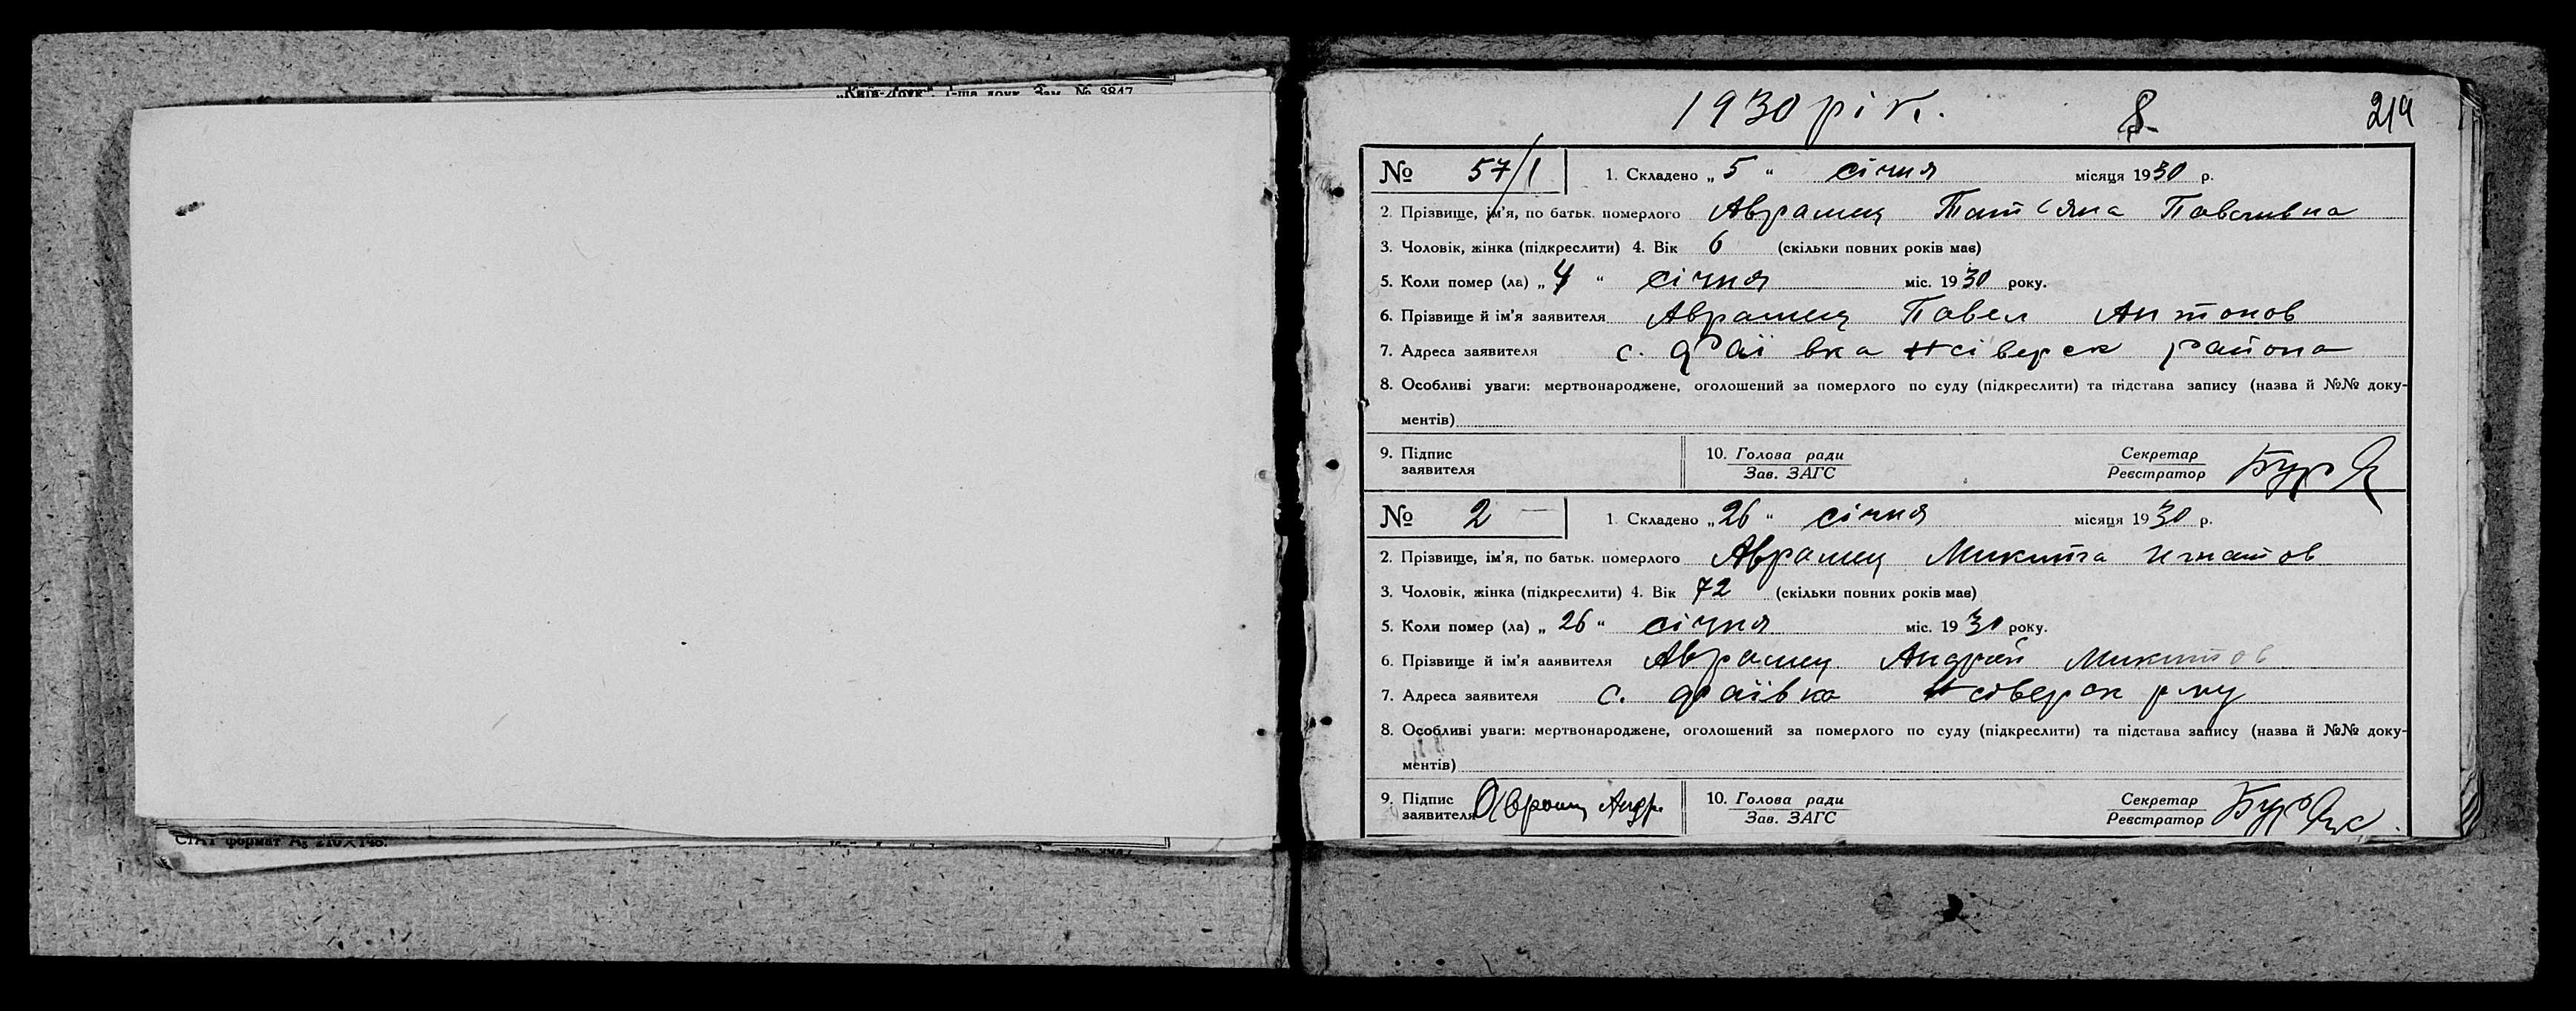 „Київ-Друк". 1-ша друк. Зам. № 8847
СТАТ формат А5 210×148.
1930 рік. 8 219
№ 57/1 1. Складено „5“ січня місяця 1930 р.
2. Прізвище, ім'я, по батьк. померлого Аврамец Тат'яна Павлівна
3. Чоловік, жінка (підкреслити) 4. Вік 6 (скільки повних років має)
5. Коли помер (ла) „4“ січня міс. 1930 року.
6. Прізвище й ім'я заявителя Аврамец Павел Антонов
7. Адреса заявителя с. Фаївка Н сіверск района
8. Особливі уваги: мертвонароджене, оголошений за померлого по суду (підкреслити) та підстава запису (назва й №№ доку-
ментів)
9. Підпис 10. Голова ради Секретар
заявителя Зав. ЗАГС Реєстратор
№ 2 1. Складено „26“ січня місяця 1930 р.
2. Прізвище, ім'я, по батьк. померлого Аврамец Микита Игнатов
3. Чоловік, жінка (підкреслити) 4. Вік 72 (скільки повних років має)
5. Коли помер (ла) „26“ січня міс. 1930 року.
6. Прізвище й ім'я заявителя Аврамец Андрей Микитов
7. Адреса заявителя с. Фаївка Н сіверск р ну
8. Особливі уваги: мертвонароджене, оголошений за померлого по суду (підкреслити) та підстава запису (назва й №№ доку-
ментів)
9. Підпис 10. Голова ради Секретар
заявителя Аврамец Андр. Зав. ЗАГС Реєстратор